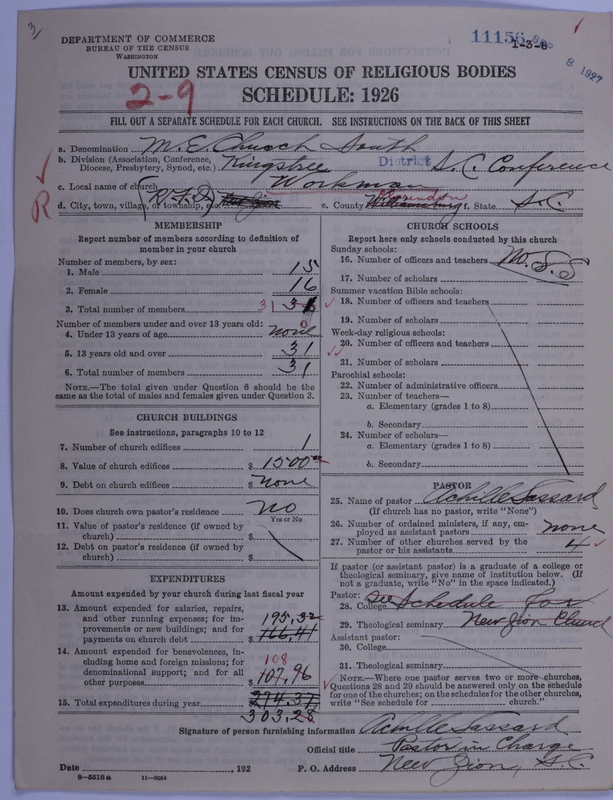 3
DEPARTMENT OF COMMERCE
BUREAU OF THE CENSUS
WASHINGTON
11156
1-3-8
8 1927
UNITED STATES CENSUS OF RELIGIOUS BODIES
2-9
SCHEDULE: 1926
FILL OUT A SEPARATE SCHEDULE FOR EACH CHURCH. SEE INSTRUCTIONS ON THE BACK OF THIS SHEET
a. Denomination M. E. Church South
b. Division (Association, Conference, Diocese, Presbytery, Synod, etc.) Kingstree District S. C. Conference
c. Local name of church Workman
R
d. City, town, village, or township, R.F.D. New Zion e. County Williamsburg Clarendon f. State S.C.
MEMBERSHIP
Report number of members according to definition of member in your church
Number of members, by sex:
1. Male 15
2. Female 16
3. Total number of members 31 31
Number of members under and over 13 years old:
4. Under 13 years of age none 0
5. 13 years old and over 31
6. Total number of members 31
NOTE.—The total given under Question 6 should be the same as the total of males and females given under Question 3.
CHURCH BUILDINGS
See instructions, paragraphs 10 to 12
7. Number of church edifices 1
8. Value of church edifices $ 1500
9. Debt on church edifices $ none
10. Does church own pastor's residence No
Yes or No
11. Value of pastor's residence (if owned by church) $
12. Debt on pastor's residence (if owned by church) $
EXPENDITURES
Amount expended by your church during last fiscal year
13. Amount expended for salaries, repairs, and other running expenses; for improvements or new buildings; and for payments on church debt $ 195.32 166.41
14. Amount expended for benevolences, including home and foreign missions; for denominational support; and for all other purposes $ 108 107.96
15. Total expenditures during year $ 274.37
303.28
CHURCH SCHOOLS
Report here only schools conducted by this church
Sunday schools:
16. Number of officers and teachers No. S. S
17. Number of scholars
Summer vacation Bible schools:
18. Number of officers and teachers
19. Number of scholars
Week-day religious schools:
20. Number of officers and teachers
21. Number of scholars
Parochial schools:
22. Number of administrative officers
23. Number of teachers—
a. Elementary (grades 1 to 8)
b. Secondary
24. Number of scholars—
a. Elementary (grades 1 to 8)
b. Secondary
PASTOR
25. Name of pastor Achille Sassard
(If church has no pastor, write "None")
26. Number of ordained ministers, if any, employed as assistant pastors none
27. Number of other churches served by the pastor or his assistants 4
If pastor (or assistant pastor) is a graduate of a college or theological seminary, give name of institution below. (If not a graduate, write "No" in the space indicated.)
Pastor:
28. College See Schedule for
29. Theological seminary New Zion Church
Assistant pastor:
30. College
31. Theological seminary
NOTE.—Where one pastor serves two or more churches, Questions 28 and 29 should be answered only on the schedule for one of the churches; on the schedules for the other churches, write "See schedule for church."
Signature of person furnishing information Achille Sassard
Official title Pastor in Charge
Date , 192 P. O. Address New Zion, S.C.
8—5518a 11—9054